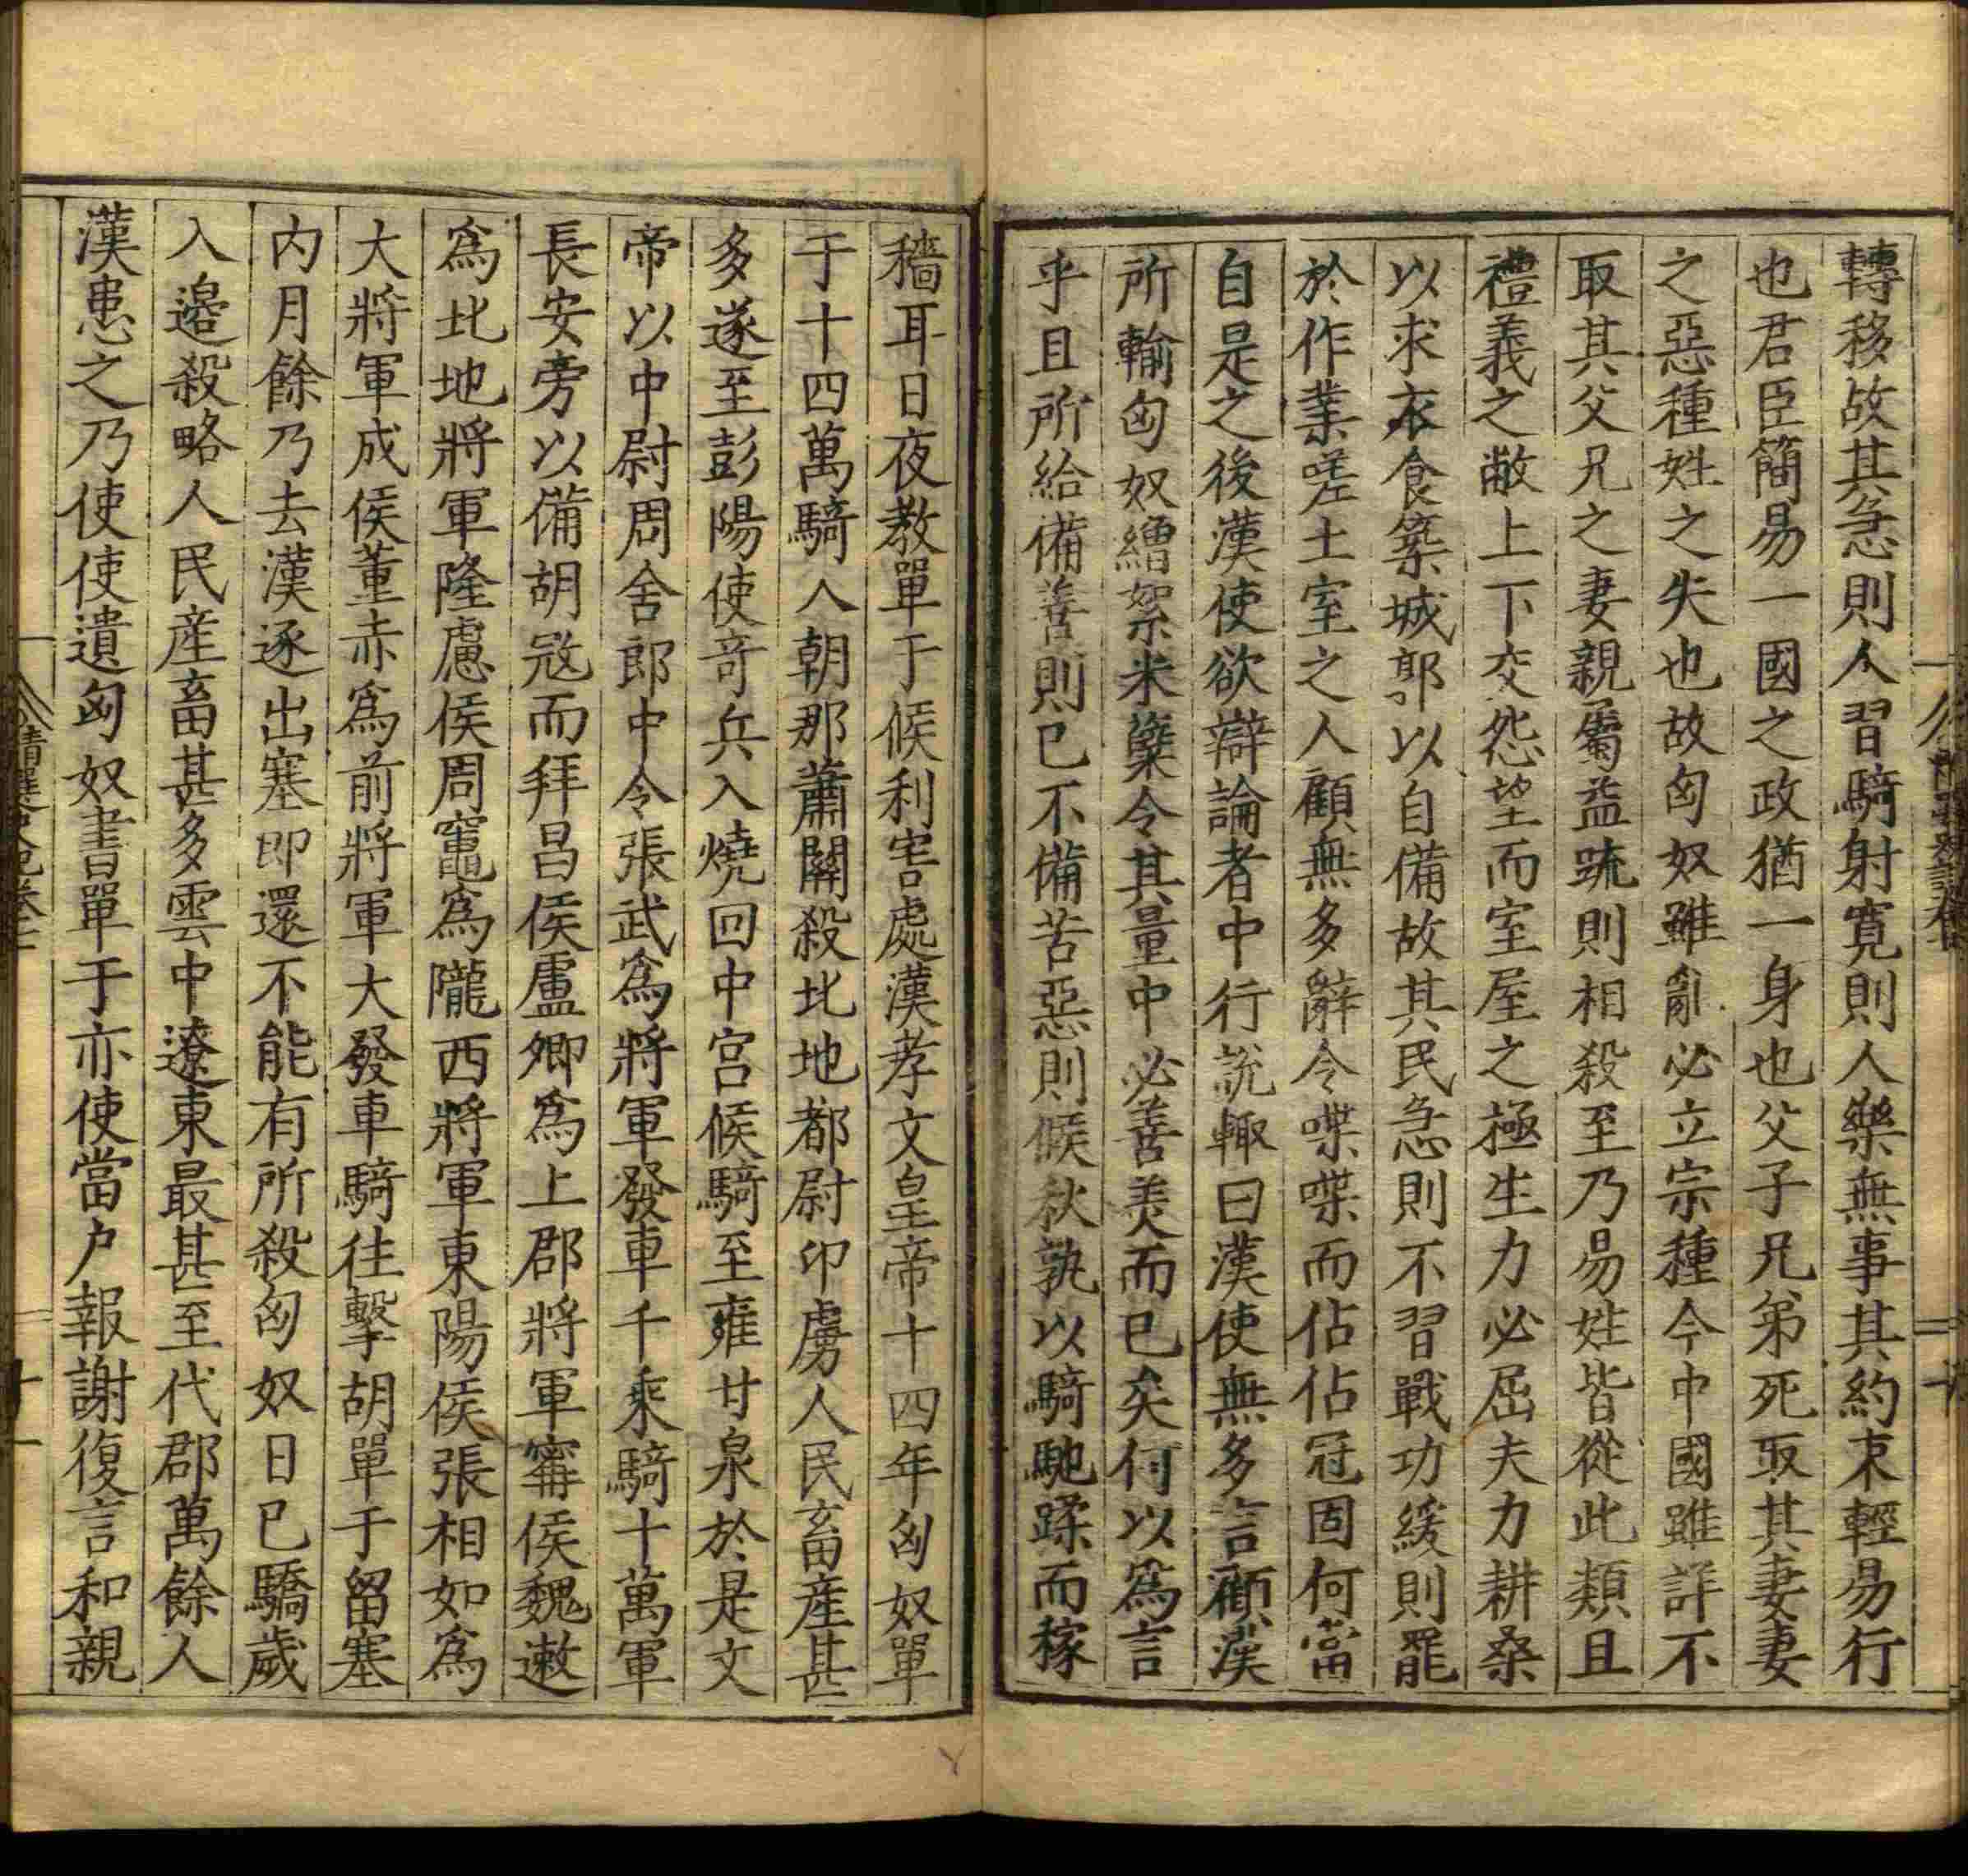 轉移故其急則人習騎射寬則人樂無事其約束輕易行
也君臣簡易一國之政猶一身也父子兄弟死取其妻妻
之惡種姓之失也故匈奴雖亂必立宗種今中國雖詳不
取其父兄之妻親屬益踈則相殺至乃易姓皆從此類且
禮義之敝上下交怨望而室屋之極生力必屈夫力耕桑
以求衣食築城郭以自備故其民急則不習戰功緩則罷
於作業嗟土室之人顧無多辭令喋喋而佔佔冠固何當
自是之後漢使欲辯論者中行說輒曰漢使無多言顧漢
所輸匈奴繒絮米糱令其量中必善美而已矣何以為言
乎且所給備善則已不備苦惡則候秋孰以騎馳蹂而稼
穡耳日夜教單于候利害處漢孝文皇帝十四年匈奴單
于十四萬騎入朝那蕭關殺北地都尉卬虜人民畜產甚
多遂至彭陽使奇兵入燒回中宮候騎至雍甘泉於是文
帝以中尉周舍郎中令張武為將軍發車千乘騎十萬軍
長安旁以備胡寇而拜昌侯盧卿為上郡將軍甯侯魏遬
為北地將軍隆慮侯周竈為隴西將軍東陽侯張相如為
大將軍成侯董赤為前將軍大發車騎往擊胡單于留塞
內月餘乃去漢逐出塞即還不能有所殺匈奴日已驕歲
入邊殺略人民產畜甚多雲中遼東最甚至代郡萬餘人
漢患之乃使使遺匈奴書單于亦使當户報謝復言和親